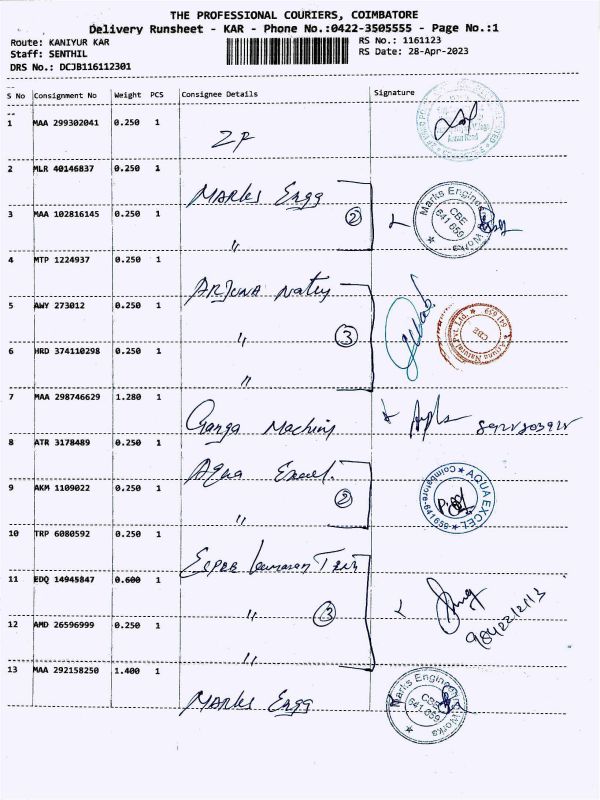 THE PROFESSIONAL COURIERS, COIMBATORE
Delivery Runsheet - KAR - Phone No.:0422-3505555 - Page No.:1
Route: KANIYUR KAR
RS No.: 1161123
Staff: SENTHIL
RS Date: 28-Apr-2023
DRS No.: DCJB116112301
S No Consignment No Weight PCS Consignee Details Signature
1 MAA 299302041 0.250 1
ZF
2 MLR 40146837 0.250 1
Marks Engg
3 MAA 102816145 0.250 1
2
"
Marks Engineering Works
CBE
641 659
4 MTP 1224937 0.250 1
Arjuna
5 AWY 273012 0.250 1
"
3
Arjuna Natural Pvt. Ltd. 641 659
CBE
6 HRD 374110298 0.250 1
"
7 MAA 298746629 1.280 1
Ganga
8 ATR 3178489 0.250 1
Aqua Excel.
9 AKM 1109022 0.250 1
2
"
AQUA EXCEL
Coimbatore-641 659
10 TRP 6080592 0.250 1
11 EDQ 14945847 0.600 1
"
3
12 AMD 26596999 0.250 1
"
13 MAA 292158250 1.400 1
Marks Engg
Marks Engineering Works
CBE
641 659